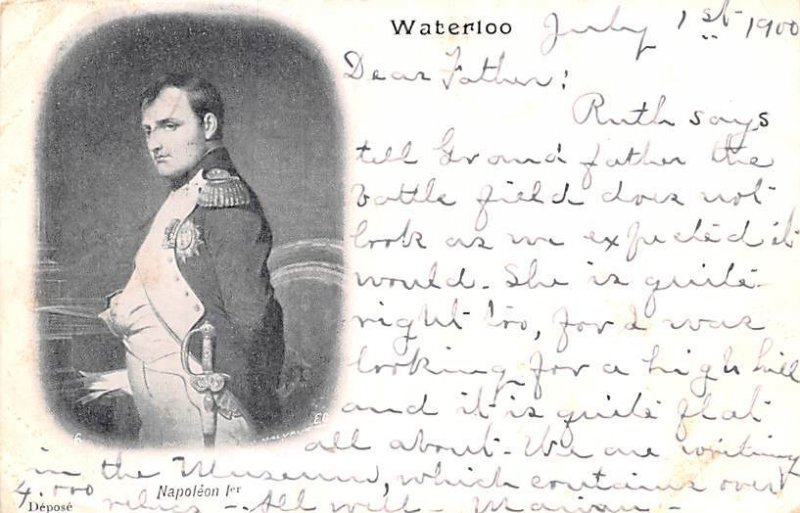 Waterloo July 1st 1900
Dear Father:
Ruth says
tell Grand father the
battle field does not
look as we expected it
would. She is quite
right too, for I was
looking for a high hill
and it is quite flat
all about. We are writing
in the Museum, which contains over
4.000 relics - All well - Marian -
Napoléon Ier
Déposé